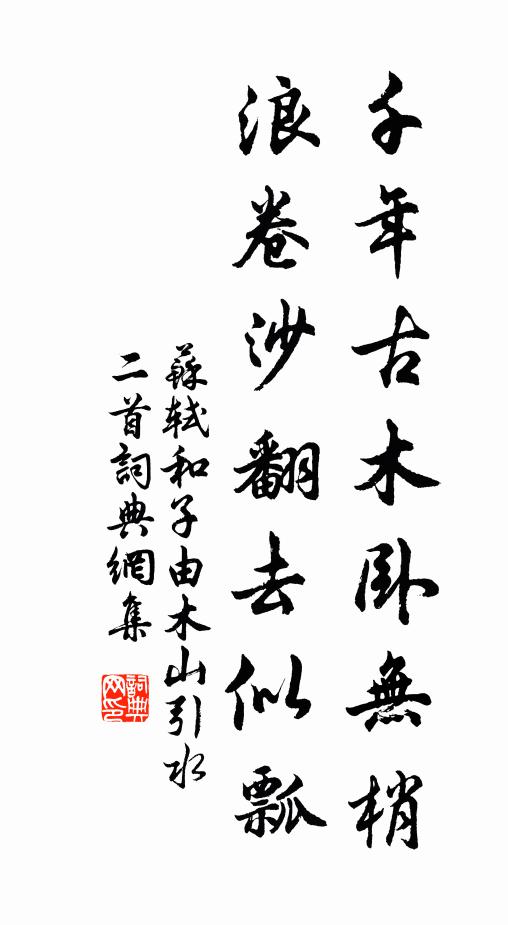 千年古木卧無梢
浪卷沙翻去似瓢
蘇軾和子由木山引水
二首詞典網集
詞典
网印